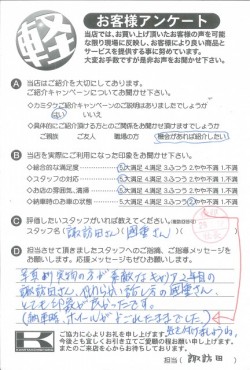 軽
お客様アンケート
当店では、お買い上げ頂いたお客様の声を可能
な限り現場に反映し、お客様により良い商品と
サービスを提供する事に努めています。
大変お手数ですが是非お声をお聞かせ下さい。
A 当店はご紹介を大切にしております。
ご紹介キャンペーンについてお聞かせ下さい。
◇カミタケご紹介キャンペーンのご説明はありましたでしょうか
はい いいえ
◇具体的にご紹介頂ける方とのご関係をお聞かせ頂けますでしょうか
ご親族 ご友人 職場の方 機会があれば紹介したい
B 当店を実際にご利用になった印象をお聞かせ下さい。
◇総合的な満足度 5.大満足 4.満足 3.ふつう 2.やや不満 1.不満
◇スタッフの対応 5.大満足 4.満足 3.ふつう 2.やや不満 1.不満
◇お店の雰囲気、清掃 5.大満足 4.満足 3.ふつう 2.やや不満 1.不満
◇納車時のお車の状態 5.大満足 4.満足 3.ふつう 2.やや不満 1.不満
C 評価したいスタッフがいれば教えてください。
スタッフ名(諏訪田さん)(國重さん)
D 担当させて頂きましたスタッフへのご指摘、ご指導メッセージを
お願いします。応援メッセージもぜひお願いします。
写真より実物の方が素敵な
諏訪田さん、
とても印象が良かったです。
(納車時、ホイールがよごれてましたでした)
ご協力に心よりお礼を申し上げます。
今後とも宜しくお引き立てご愛顧の程お願い申し上げます。
またのご来店を心からお待ちしております。
担当(諏訪田)